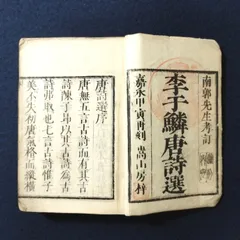 南郭先生考訂
李于鱗唐詩選
嘉永甲寅再刻 嵩山房梓
唐詩選序
唐無五言古詩而有其古
詩陳子昂以其古詩為古
詩弗取也七言古詩惟子
美不失初唐氣格而縱橫